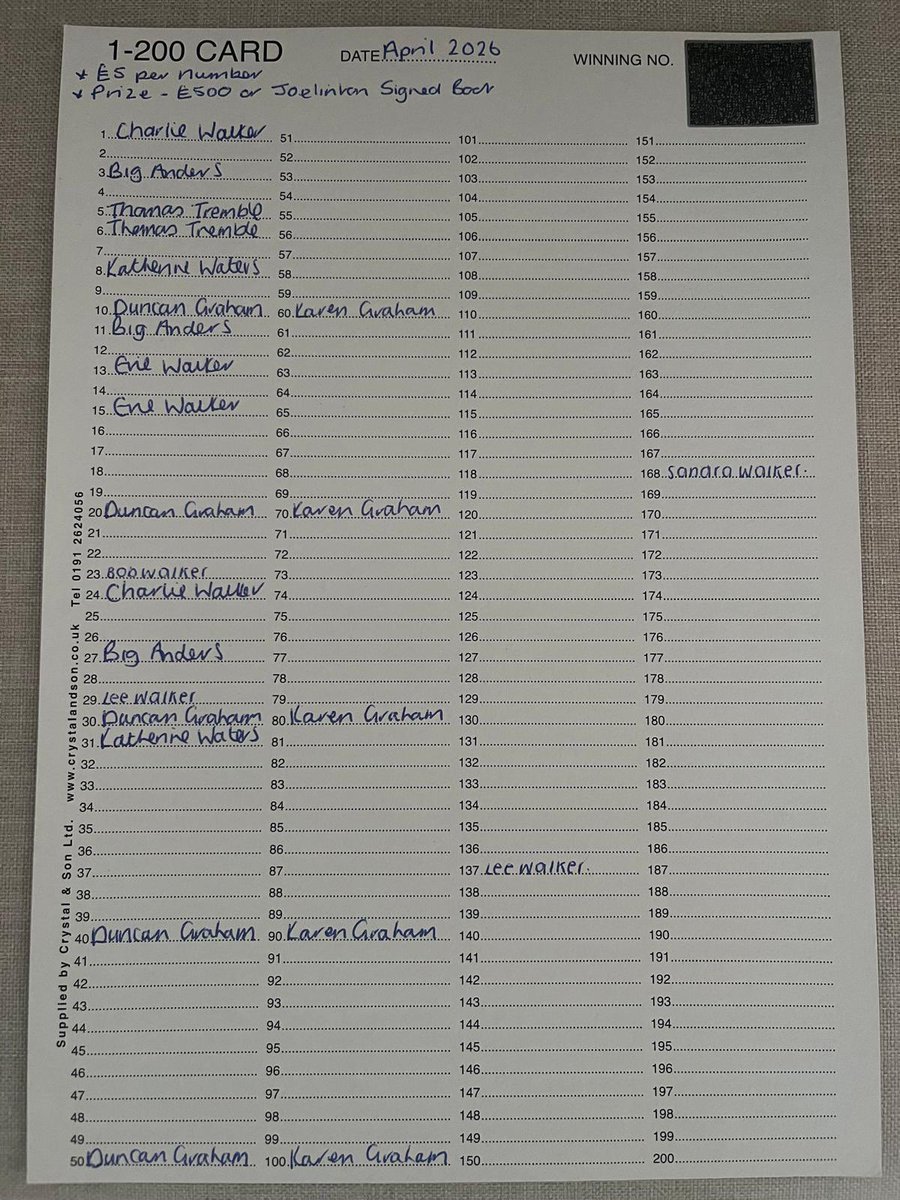 1-200 CARD
DATE April 2026
WINNING NO.
* £5 per number
* Prize - £500 or Joelinton Signed Boot
1. Charlie Walker
2.
3. Big Anders
4.
5. Thomas Tremble
6. Thomas Tremble
7.
8. Katherine Waters
9.
10. Duncan Graham
11. Big Anders
12.
13. Evie Walker
14.
15. Evie Walker
16.
17.
18.
19.
20 Duncan Graham
21.
22.
23. Bob Walker
24. Charlie Walker
25.
26.
27. Big Anders
28.
29. Lee Walker
30. Duncan Graham
31. Katherine Waters
32.
33.
34.
35.
36.
37.
38.
39.
40 Duncan Graham
41.
42.
43.
44.
45.
46.
47.
48.
49.
50 Duncan Graham
51.
52.
53.
54.
55.
56.
57.
58.
59.
60. Karen Graham
61.
62.
63.
64.
65.
66.
67.
68.
69.
70. Karen Graham
71.
72.
73.
74.
75.
76.
77.
78.
79.
80 Karen Graham
81.
82.
83.
84.
85.
86.
87.
88.
89.
90. Karen Graham
91.
92.
93.
94.
95.
96.
97.
98.
99.
100. Karen Graham
101.
102.
103.
104.
105.
106.
107.
108.
109.
110.
111.
112.
113.
114.
115.
116.
117.
118.
119.
120.
121.
122.
123.
124.
125.
126.
127.
128.
129.
130.
131.
132.
133.
134.
135.
136.
137 Lee Walker.
138.
139.
140.
141.
142.
143.
144.
145.
146.
147.
148.
149.
150.
151.
152.
153.
154.
155.
156.
157.
158.
159.
160.
161.
162.
163.
164.
165.
166.
167.
168 Sandra Walker.
169.
170.
171.
172.
173.
174.
175.
176.
177.
178.
179.
180.
181.
182.
183.
184.
185.
186.
187.
188.
189.
190.
191.
192.
193.
194.
195.
196.
197.
198.
199.
200.
Supplied by Crystal & Son Ltd. www.crystalandson.co.uk Tel 0191 2624056